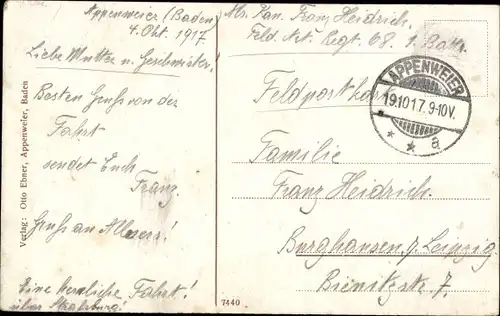 Appenweier (Baden)
4. Okt. 1917.
Liebe Mutter u. Geschwister!
Besten Gruss von der
Fahrt
sendet Euch
Franz.
Gruss an Allverr!
Eine herrliche Fahrt!
über Strassburg!
Verlag: Otto Ebner, Appenweier, Baden
7440
Kan. Franz Heidrich.
Feld. Art. Regt. 68. 1. Battr.
APPENWEIER
19.10.17.9-10V.
a
Feldpostkarte
Familie
Franz Heidrich.
Burghausen p. Leipzig
Bienitzstr. 7.